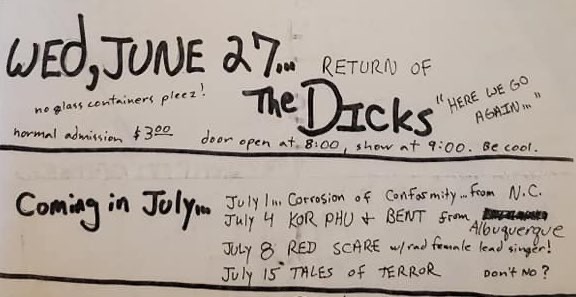 WED, JUNE 27... RETURN OF
no glass containers pleez! The DICKS "HERE WE GO AGAIN..."
normal admission $3.00 door open at 8:00, show at 9:00. Be cool.
Coming in July...
July 1... Corrosion of Conformity... from N.C.
July 4 KOR PHU + BENT from Albuquerque
July 8 RED SCARE w/rad female lead singer!
July 15 TALES of TERROR Don't No?